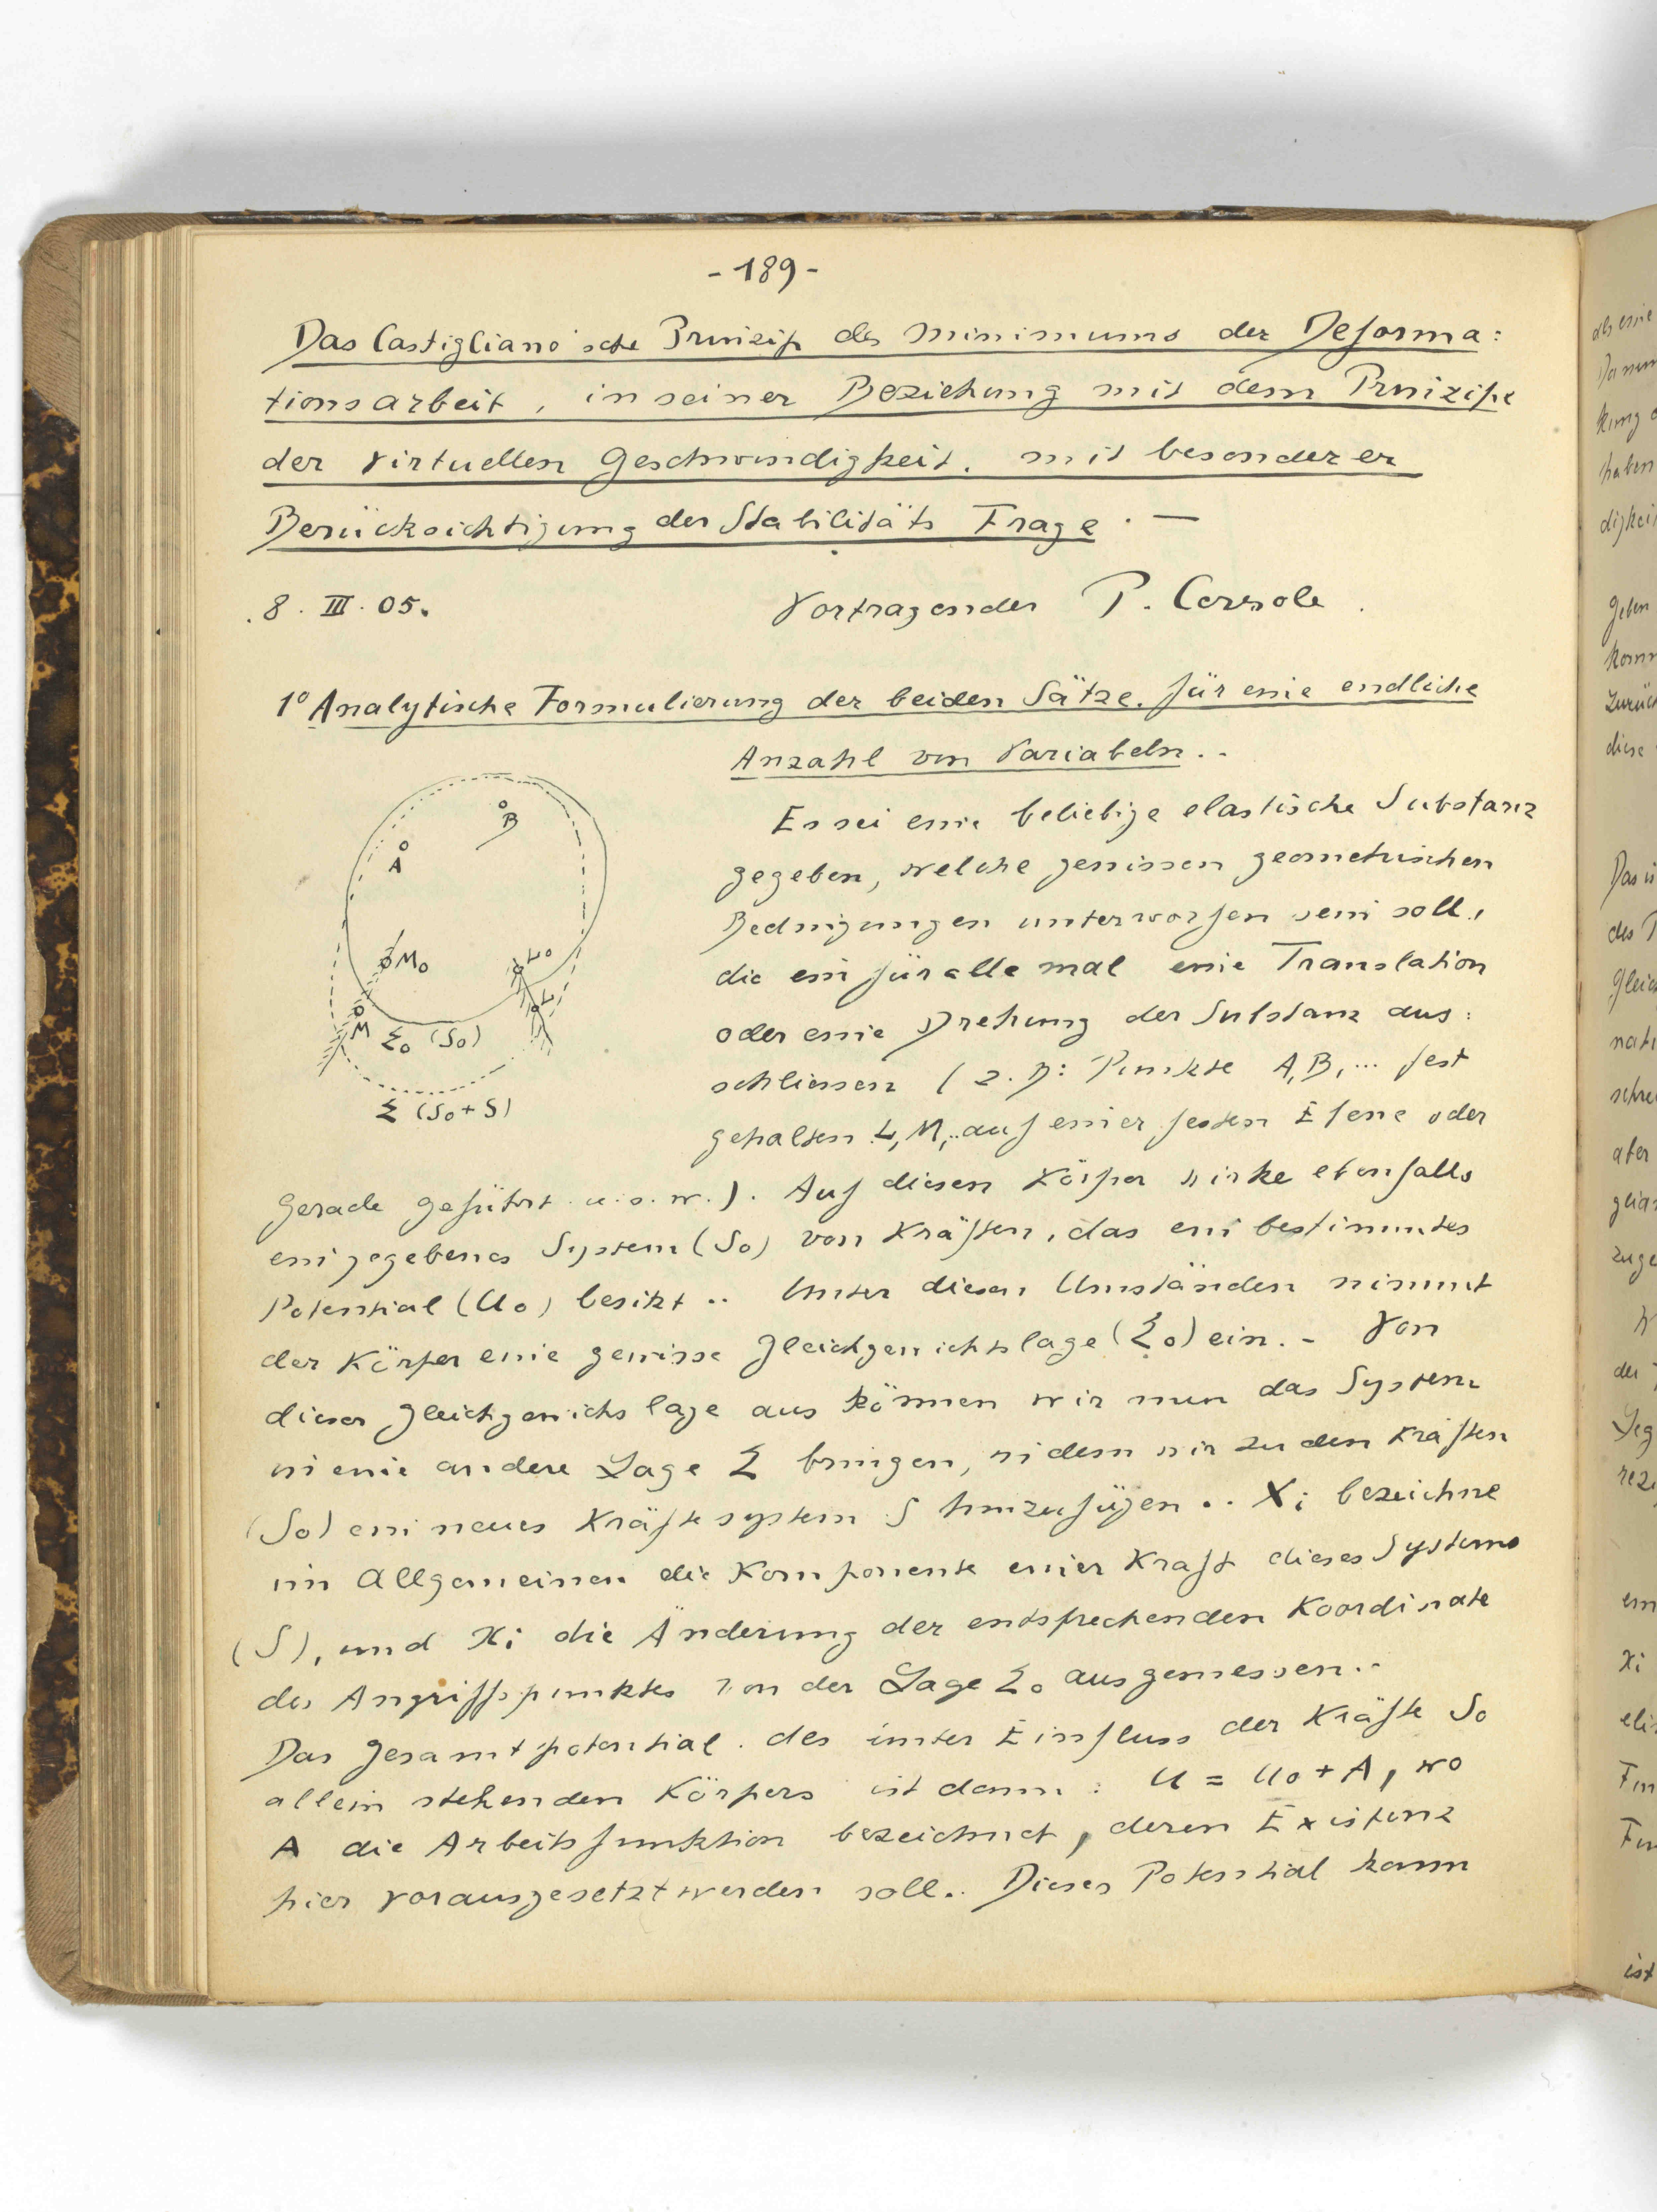 - 189 -
Das Castigliano'sche Prinzip des Minimums der Deforma:
tionsarbeit, in seiner Beziehung mit dem Prinzipe
der virtuellen Geschwindigkeit, mit besonderer
Berücksichtigung der Stabilitäts Frage. —
8. III. 05.
Vortragender P.
1º Analytische Formulierung der beiden Sätze, für eine endliche
Anzahl von Variabeln. -
B
A
M₀
L₀
L
M
Σ₀ (S₀)
Σ (S₀ + S)
Es sei eine beliebige elastische Substanz
gegeben, welche gewissen geometrischen
Bedingungen unterworfen sein soll,
die ein für alle mal eine Translation
oder eine Drehung der Substanz aus:
schliessen (z. B: Punkte A, B, ... fest
gehalten L, M, .. auf einer festen Ebene oder
Gerade geführt u. s. w.). Auf diesen Körper wirke ebenfalls
ein gegebenes System (S₀) von Kräften, das ein bestimmtes
Potential (U₀) besitzt .. Unter diesen Umständen nimmt
der Körper eine gewisse Gleichgewichtslage (Σ₀) ein. - Von
dieser Gleichgewichtslage aus können wir nun das System
in eine andere Lage Σ bringen, indem wir zu den Kräften
(S₀) ein neues Kräftesystem S hinzufügen .. Xi bezeichne
im Allgemeinen die Komponente einer Kraft dieses Systems
(S), und xi die Änderung der entsprechenden Koordinate
des Angriffspunktes von der Lage Σ₀ aus gemessen. -
Das Gesamtpotential des unter Einfluss der Kräfte S₀
allein stehenden Körpers ist dann: U = U₀ + A, wo
A die Arbeitsfunktion bezeichnet, deren Existenz
hier vorausgesetzt werden soll. Dieses Potential kann